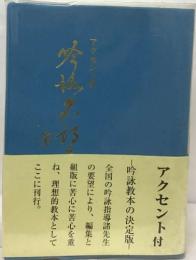 アクセント付
吟詠
アクセント付
吟詠教本の決定版!
全国の吟詠指導諸先生
の要望により、編集と
組版に苦心に苦心を重
ね、理想的教本として
ここに刊行。